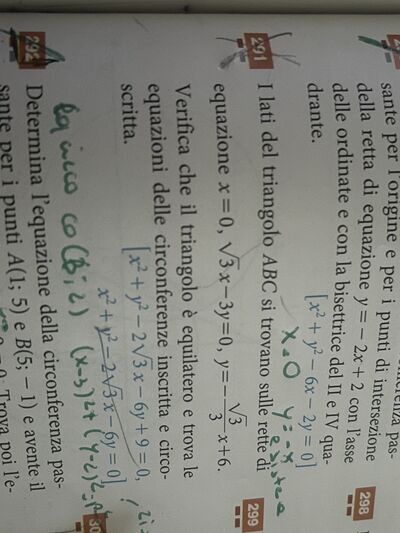 sante per l'origine e per i punti di intersezione
della retta di equazione y = − 2x + 2 con l'asse
delle ordinate e con la bisettrice del II e IV qua-
drante. [x² + y² − 6x − 2y = 0]
x=0 y=-x
291 I lati del triangolo ABC si trovano sulle rette di
equazione x = 0, √3x − 3y = 0, y = − √3/3 x + 6.
Verifica che il triangolo è equilatero e trova le
equazioni delle circonferenze inscritta e circo-
scritta. [x² + y² − 2√3x − 6y + 9 = 0,
x² + y² − 2√3x − 6y = 0]
292 Determina l'equazione della circonferenza pas-
sante per i punti A(1; 5) e B(5; − 1) e avente il
Trova poi l'e-
298
299